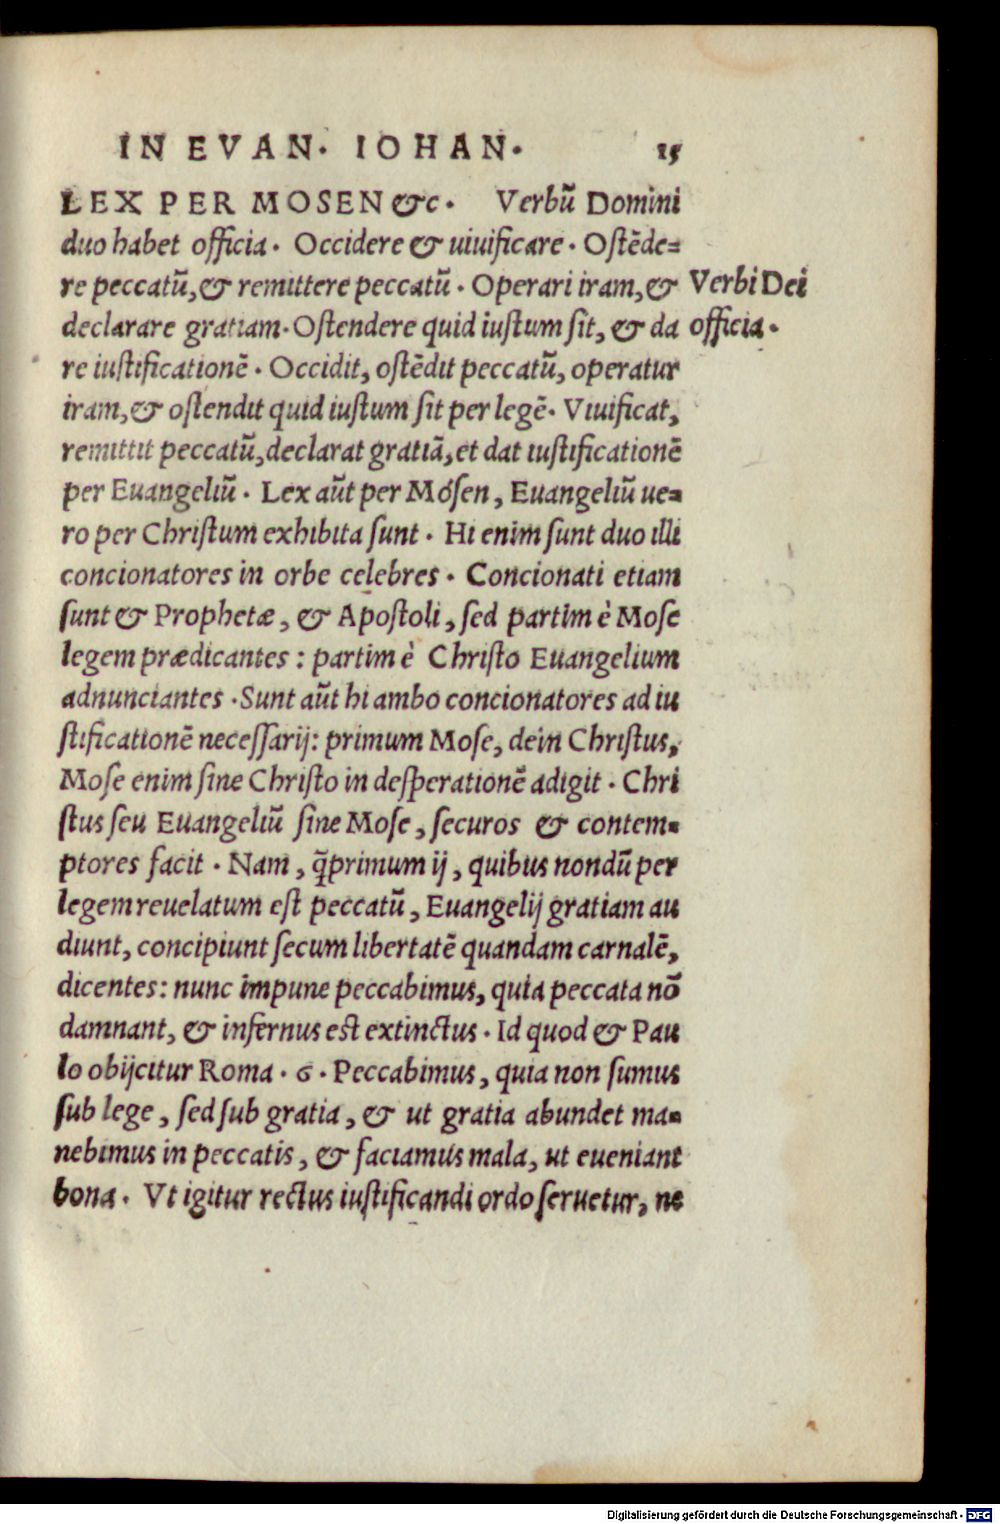 IN EVAN. IOHAN. 15
LEX PER MOSEN &c. Verbū Domini
duo habet officia. Occidere & uiuificare. Ostēde=
re peccatū, & remittere peccatū. Operari iram, &
Verbi Dei
declarare gratiam. Ostendere quid iustum sit, & da
officia.
re iustificationē. Occidit, ostēdit peccatū, operatur
iram, & ostendit quid iustum sit per legē. Viuificat,
remittit peccatū, declarat gratiā, et dat iustificationē
per Euangeliū. Lex aūt per Mosen, Euangeliū ue=
ro per Christum exhibita sunt. Hi enim sunt duo illi
concionatores in orbe celebres. Concionati etiam
sunt & Prophetæ, & Apostoli, sed partim è Mose
legem prædicantes: partim è Christo Euangelium
adnunciantes. Sunt aūt hi ambo concionatores ad iu
stificationē necessarij: primum Mose, dein Christus,
Mose enim sine Christo in desperationē adigit. Chri
stus seu Euangeliū sine Mose, securos & contem=
ptores facit. Nam, q̄primum ij, quibus nondū per
legem reuelatum est peccatū, Euangelij gratiam au
diunt, concipiunt secum libertatē quandam carnalē,
dicentes: nunc impune peccabimus, quia peccata nō
damnant, & infernus est extinctus. Id quod & Pau
lo obijcitur Roma. 6. Peccabimus, quia non sumus
sub lege, sed sub gratia, & ut gratia abundet ma=
nebimus in peccatis, & faciamus mala, ut eueniant
bona. Vt igitur rectus iustificandi ordo seruetur, ne
Digitalisierung gefördert durch die Deutsche Forschungsgemeinschaft - DFG